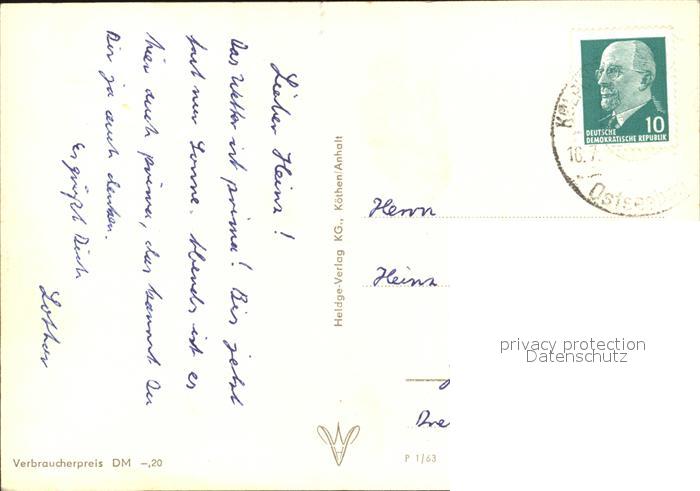 Lieber Heinz!
Das Wetter ist prima! Bis jetzt
fast nur Sonne. Abends ist es
hier auch prima, das kannst Du
Dir ja auch denken.
Es grüßt Dich
Lothar
Verbraucherpreis DM -,20
Heldge-Verlag KG., Köthen/Anhalt
P 1/63
DEUTSCHE
DEMOKRATISCHE REPUBLIK
10
16.7.
Ostseebad
Herrn
Heinz
Dre
privacy protection
Datenschutz